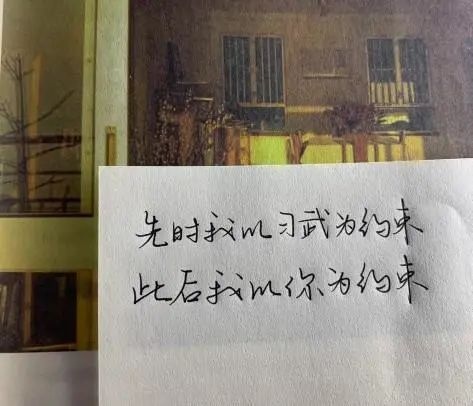 先时我以习武为约束
此后我以你为约束